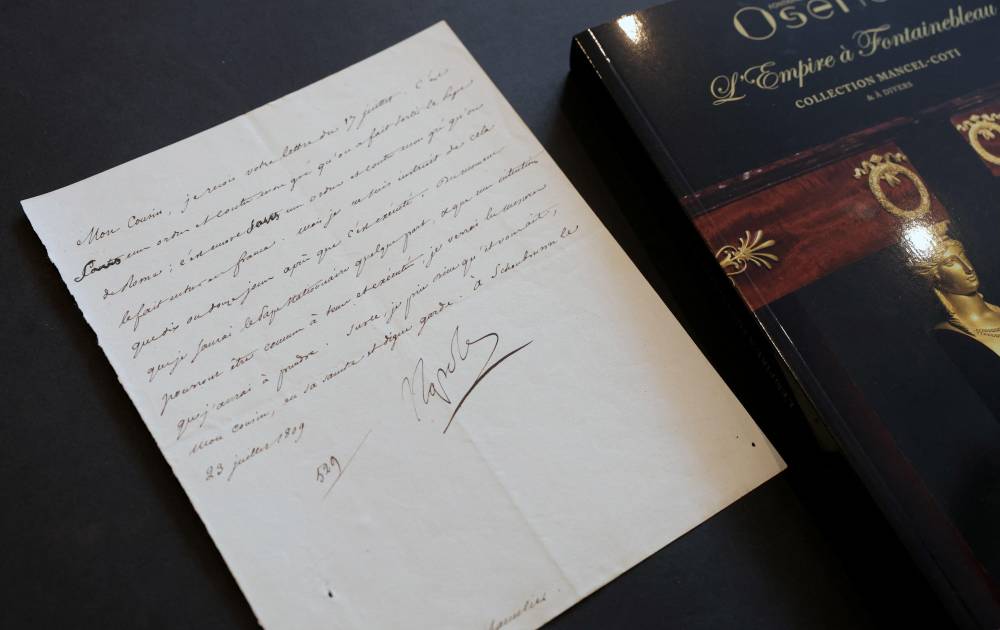 Mon Cousin, je reçois votre lettre du 17 juillet. C'est
Sans mon ordre et contre mon gré qu'on a fait sortir le Pape
de Rome; c'est encore Sans mon ordre et contre mon gré qu'on
le fait entrer en france. mais je ne suis instruit de cela
que dix ou douze jours après que c'est exécuté. Du moment
que je saurai le Pape stationnaire quelque part, et que mes intentions
pourront être connues à tems et exécutées je verrai les mesures
que j'aurai à prendre. Sur ce, je prie Dieu qu'il vous ait,
Mon Cousin, en sa sainte et digne garde. à Schoenbrunn le
23 juillet 1809
Napole
529
Osen
L'Empire à Fontainebleau
COLLECTION MANCEL-COTI
& À DIVERS